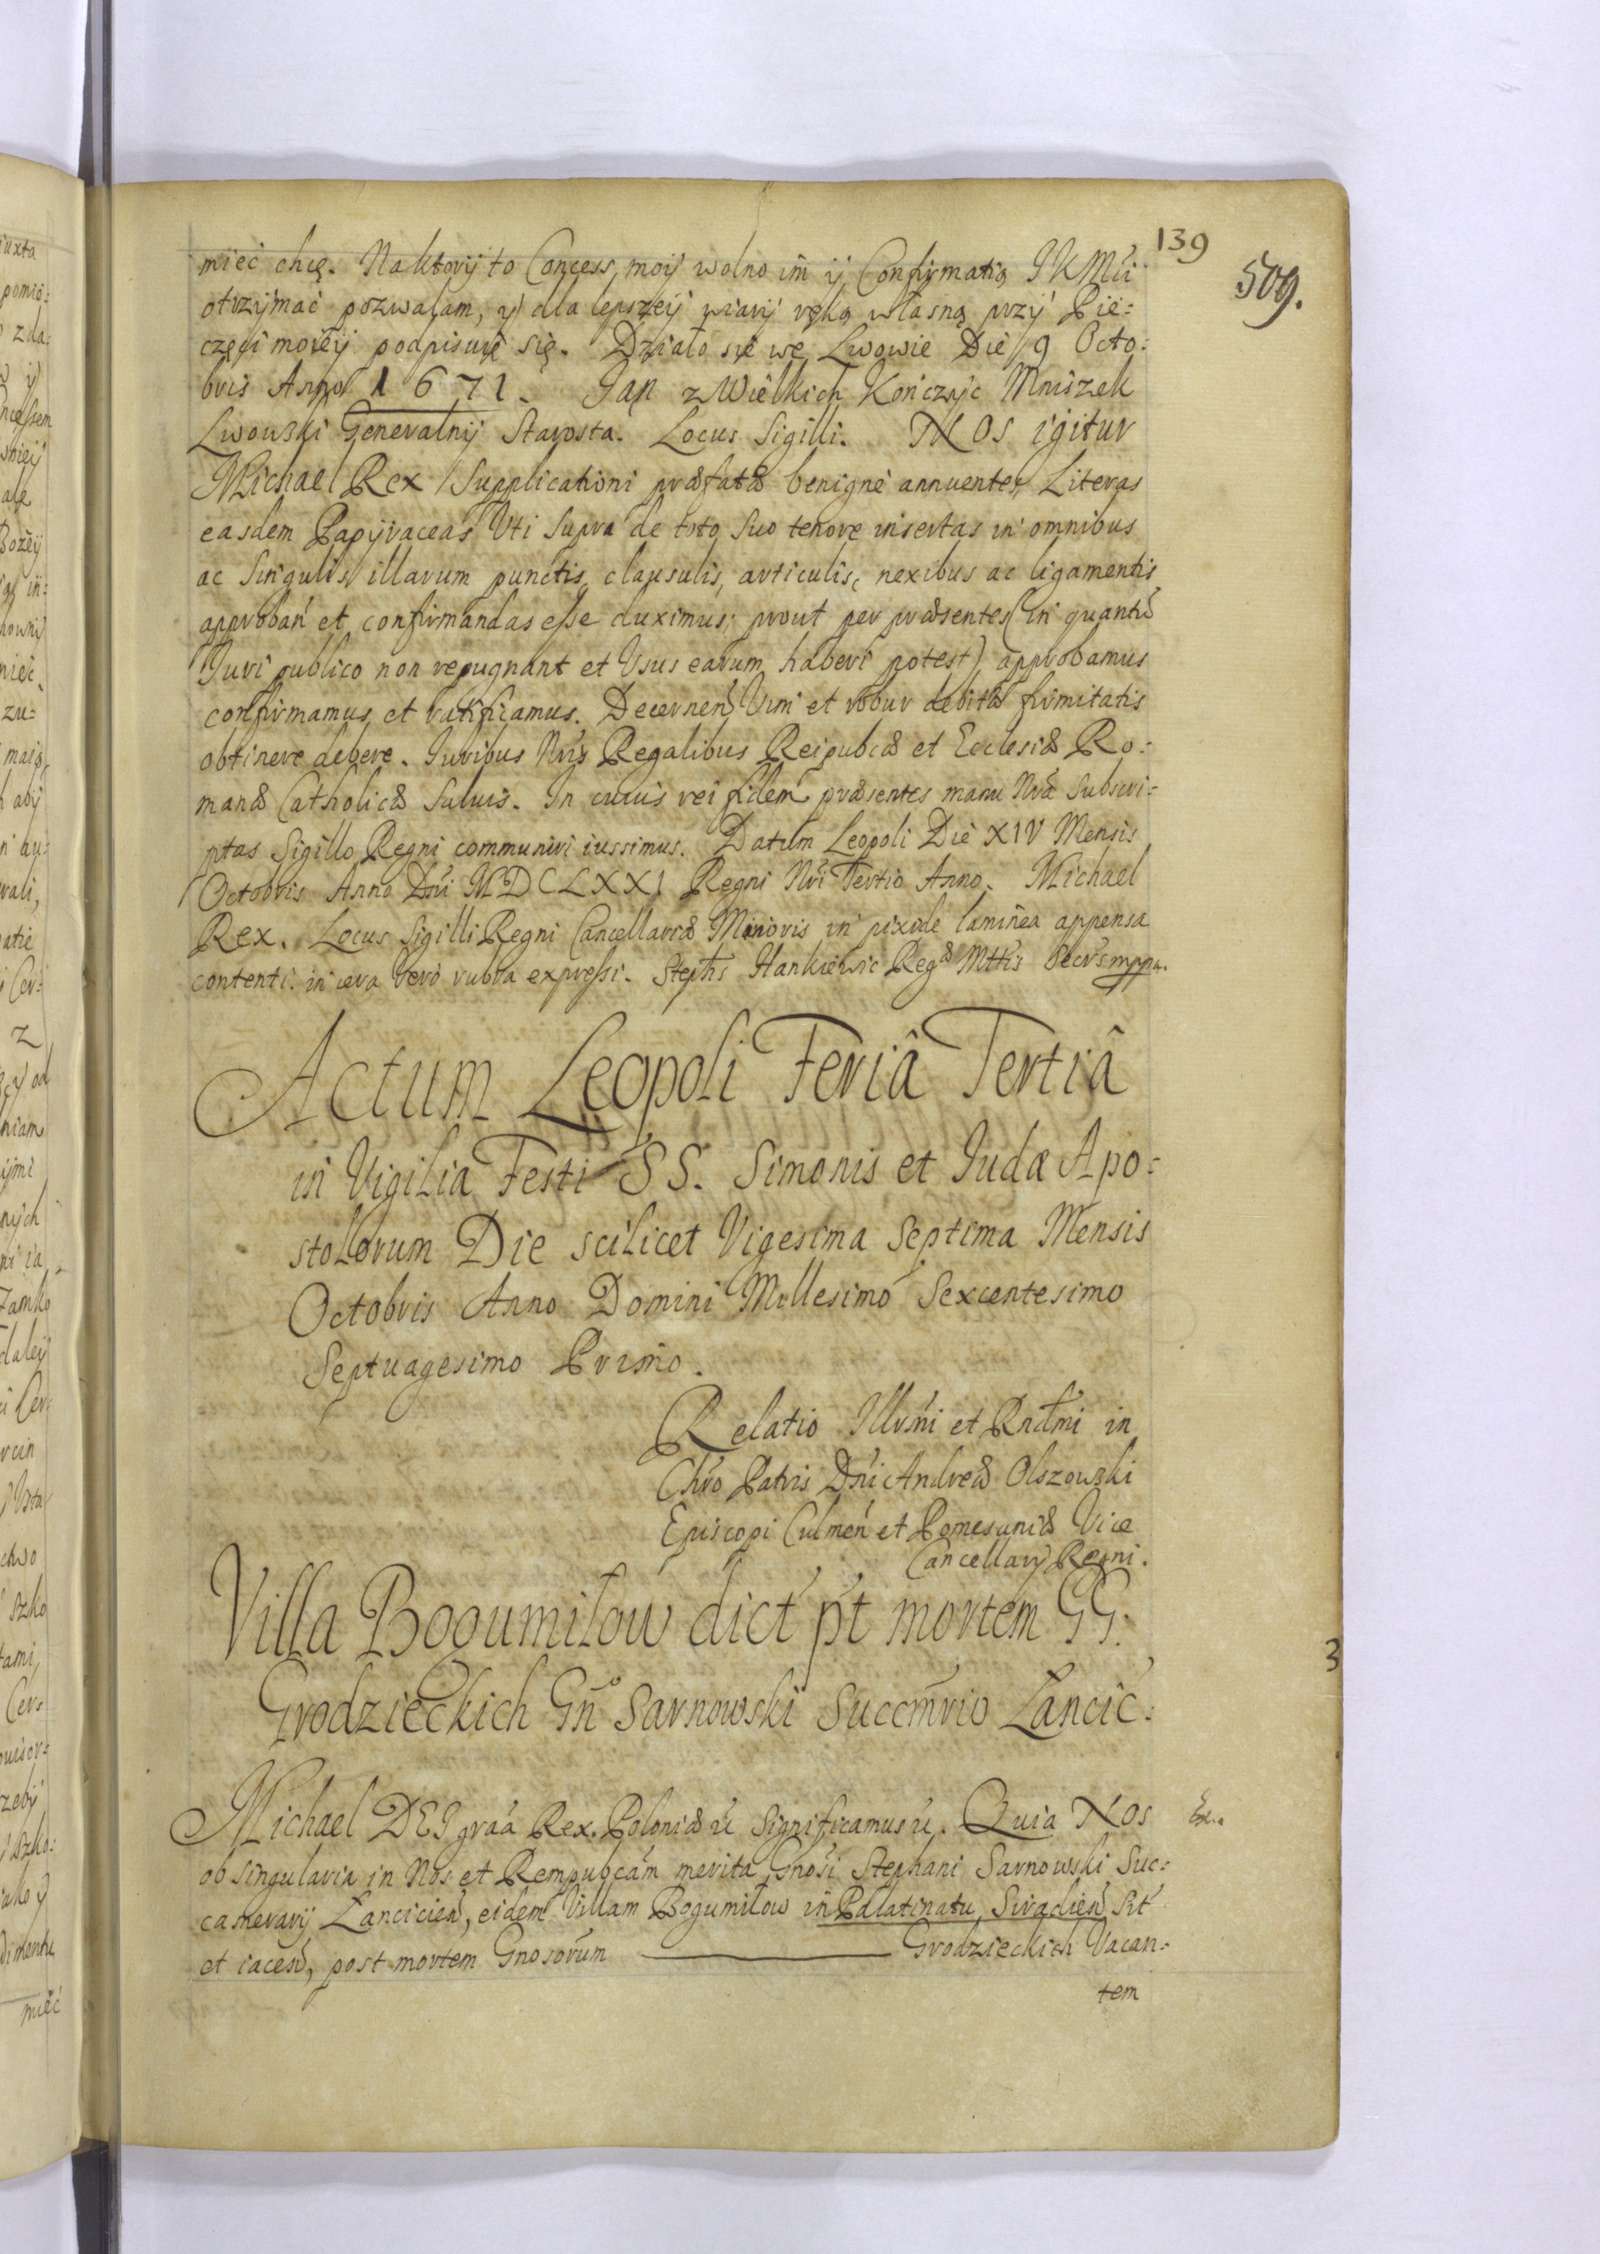 139
509.
mieć chcę. Naktory to Concess moy wolno im y Confirmatią JKMći
otrzymać pozwalam, y dla lepszey wiary ręką własną przy Pie:
częći moiey podpisuię się. Działo się we Lwowie Die 9 Octo:
bris Anno 1671. Jan z Wielkich Kończyc Mniszek
Lwowski Generalny Starosta. Locus Sigilli. NOS igitur
Michael Rex Supplicationi præfatæ benigne annuentes, Literas
easdem Papyraceas Vti supra de toto suo tenore insertas in omnibus
ac singulis illarum punctis, clausulis, articulis, nexibus ac ligamentis
approbań et confirmandas esse duximus; prout per præsentes (in quantũ
Iuri publico non repugnant et Usus earum haberi potest) approbamus
confirmamus et ratificamus. Decernen Vim et robur debitæ firmitatis
obtinere debere. Iuribus Nris Regalibus Reipubcæ et Ecclesiæ Ro:
manæ Catholicæ salvis. In cuius rei fidem præsentes manu Nra subscri:
ptas Sigillo Regni communiri iussimus. Datum Leopoli Die XIV Mensis
Octobris Anno Dni MDCLXXI Regni Nri Tertio Anno. Michael
Rex. Locus Sigilli Regni Cancellariæ Minoris in pixide laminea appensa
contenti in cera vero rubra expressi. Stephs Hankiewic Regæ Mttis Secrs mppa.
Actum Leopoli Feriâ Tertiâ
in Vigilia Festi SS. Simonis et Iudæ Apo:
stolorum Die scilicet Vigesima Septima Mensis
Octobris Anno Domini Millesimo Sexcentesimo
Septuagesimo Primo.
Relatio Illrmi et Rndmi in
Chro Patris Dni Andreæ Olszowski
Episcopi Culmen et Pomesaniæ Vice
Cancellarij Regni.
Villa Bogumilow dict pt mortem GG.
Grodzieckich Gno Sarnowski Succmrio Lancic:
3
Michael DEI graa Rex Poloniæ ỹ Significamus ỹ. Quia NOS
Ex.
ob singularia in Nos et Rempubcam merita Gnosi Stephani Sarnowski Suc:
camerarij Lancicien, eidem Villam Bogumiłow in Palatinatu Siradien sit
et iacen, post mortem Gnosorum Grodzieckich Vacan:
tem